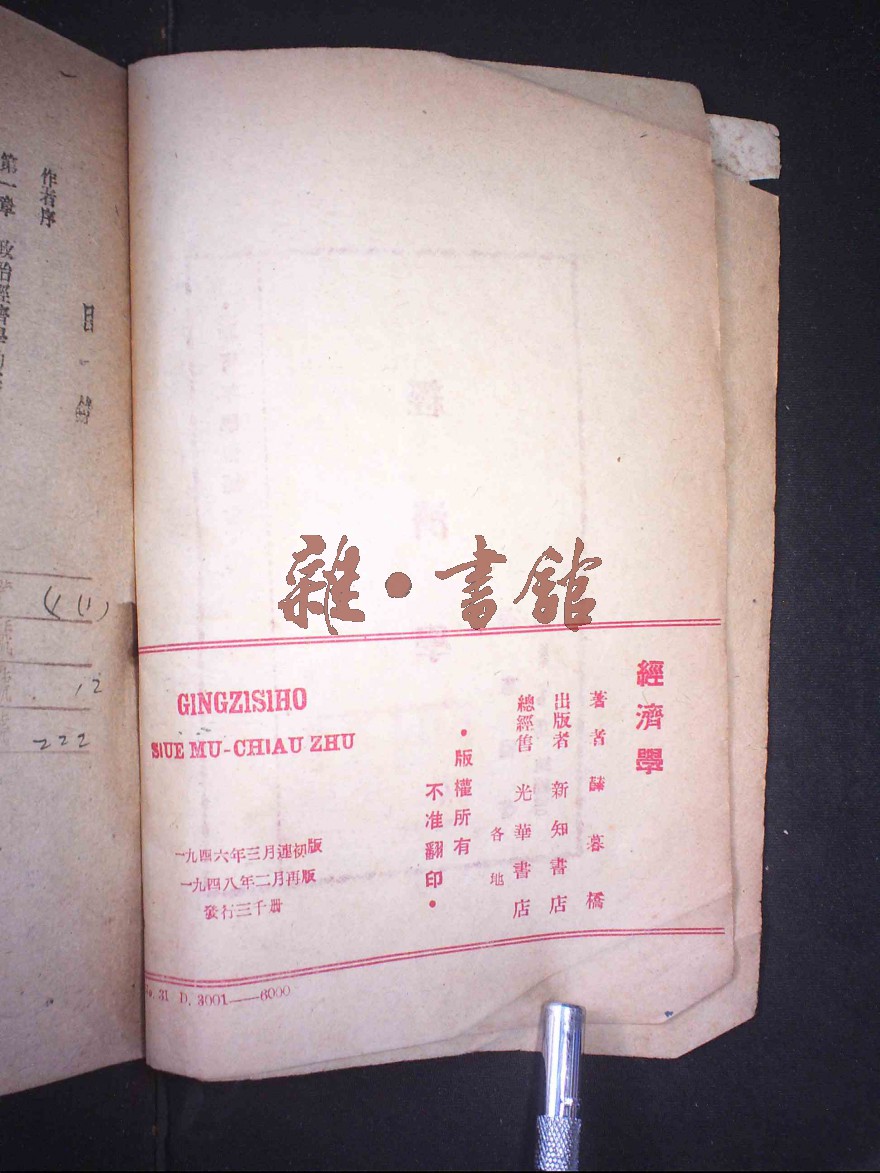 經濟學
著者 薛暮橋
出版者 新知書店
總經售 各地 光華書店
·版權所有
不准翻印·
GINGZISIHO
SIUE MU-CHIAU ZHU
一九四六年三月連初版
一九四八年二月再版
發行三千册
31 D. 3001——6000
雜·書館
目
作者序
第一章 政治經濟學
(11)
12
222